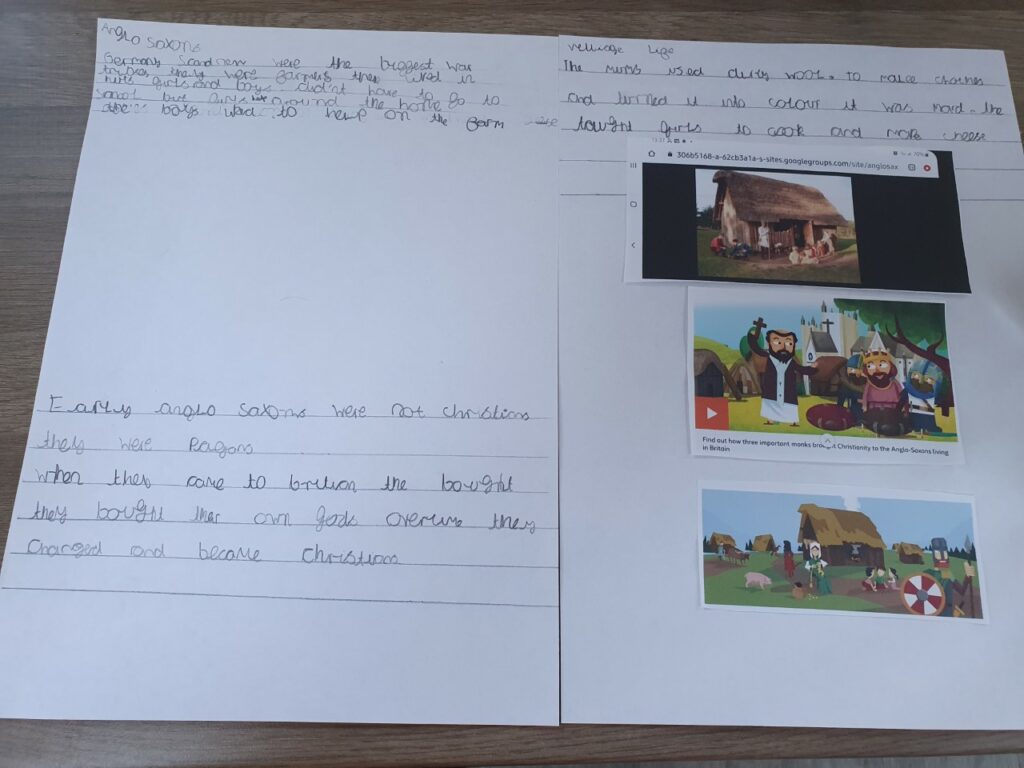 Anglo saxons
Germany Scandnen were the biggest war
tribes they were farmers they lived in
huts girls and boys didn't have to go to
school but girls around the home
boys had to help on the farm
Early anglo saxons were not christians
they were Pagons
when they came to the bought
they bought ther own gods overtime they
Changed and became Christians
village life
The mums used dirty wool. to make clothes
and turned it into colour it was hard. the
tought girls to cook and make cheese
306b5168-a-62cb3a1a-s-sites.googlegroups.com/site/anglosax
Find out how three important monks brought Christianity to the Anglo-Saxons living
in Britain